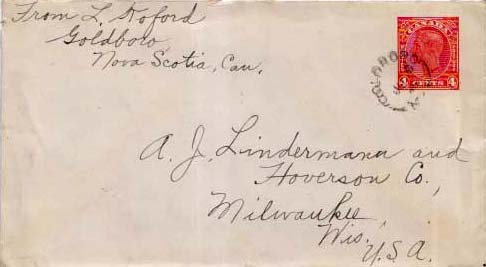 From L. Hoford
Goldboro,
Nova Scotia, Can.
CANADA
4 CENTS 4
GOLDBORO
A. J. Lindermann and
Hoverson Co.,
Milwaukee,
Wis.
U.S.A.